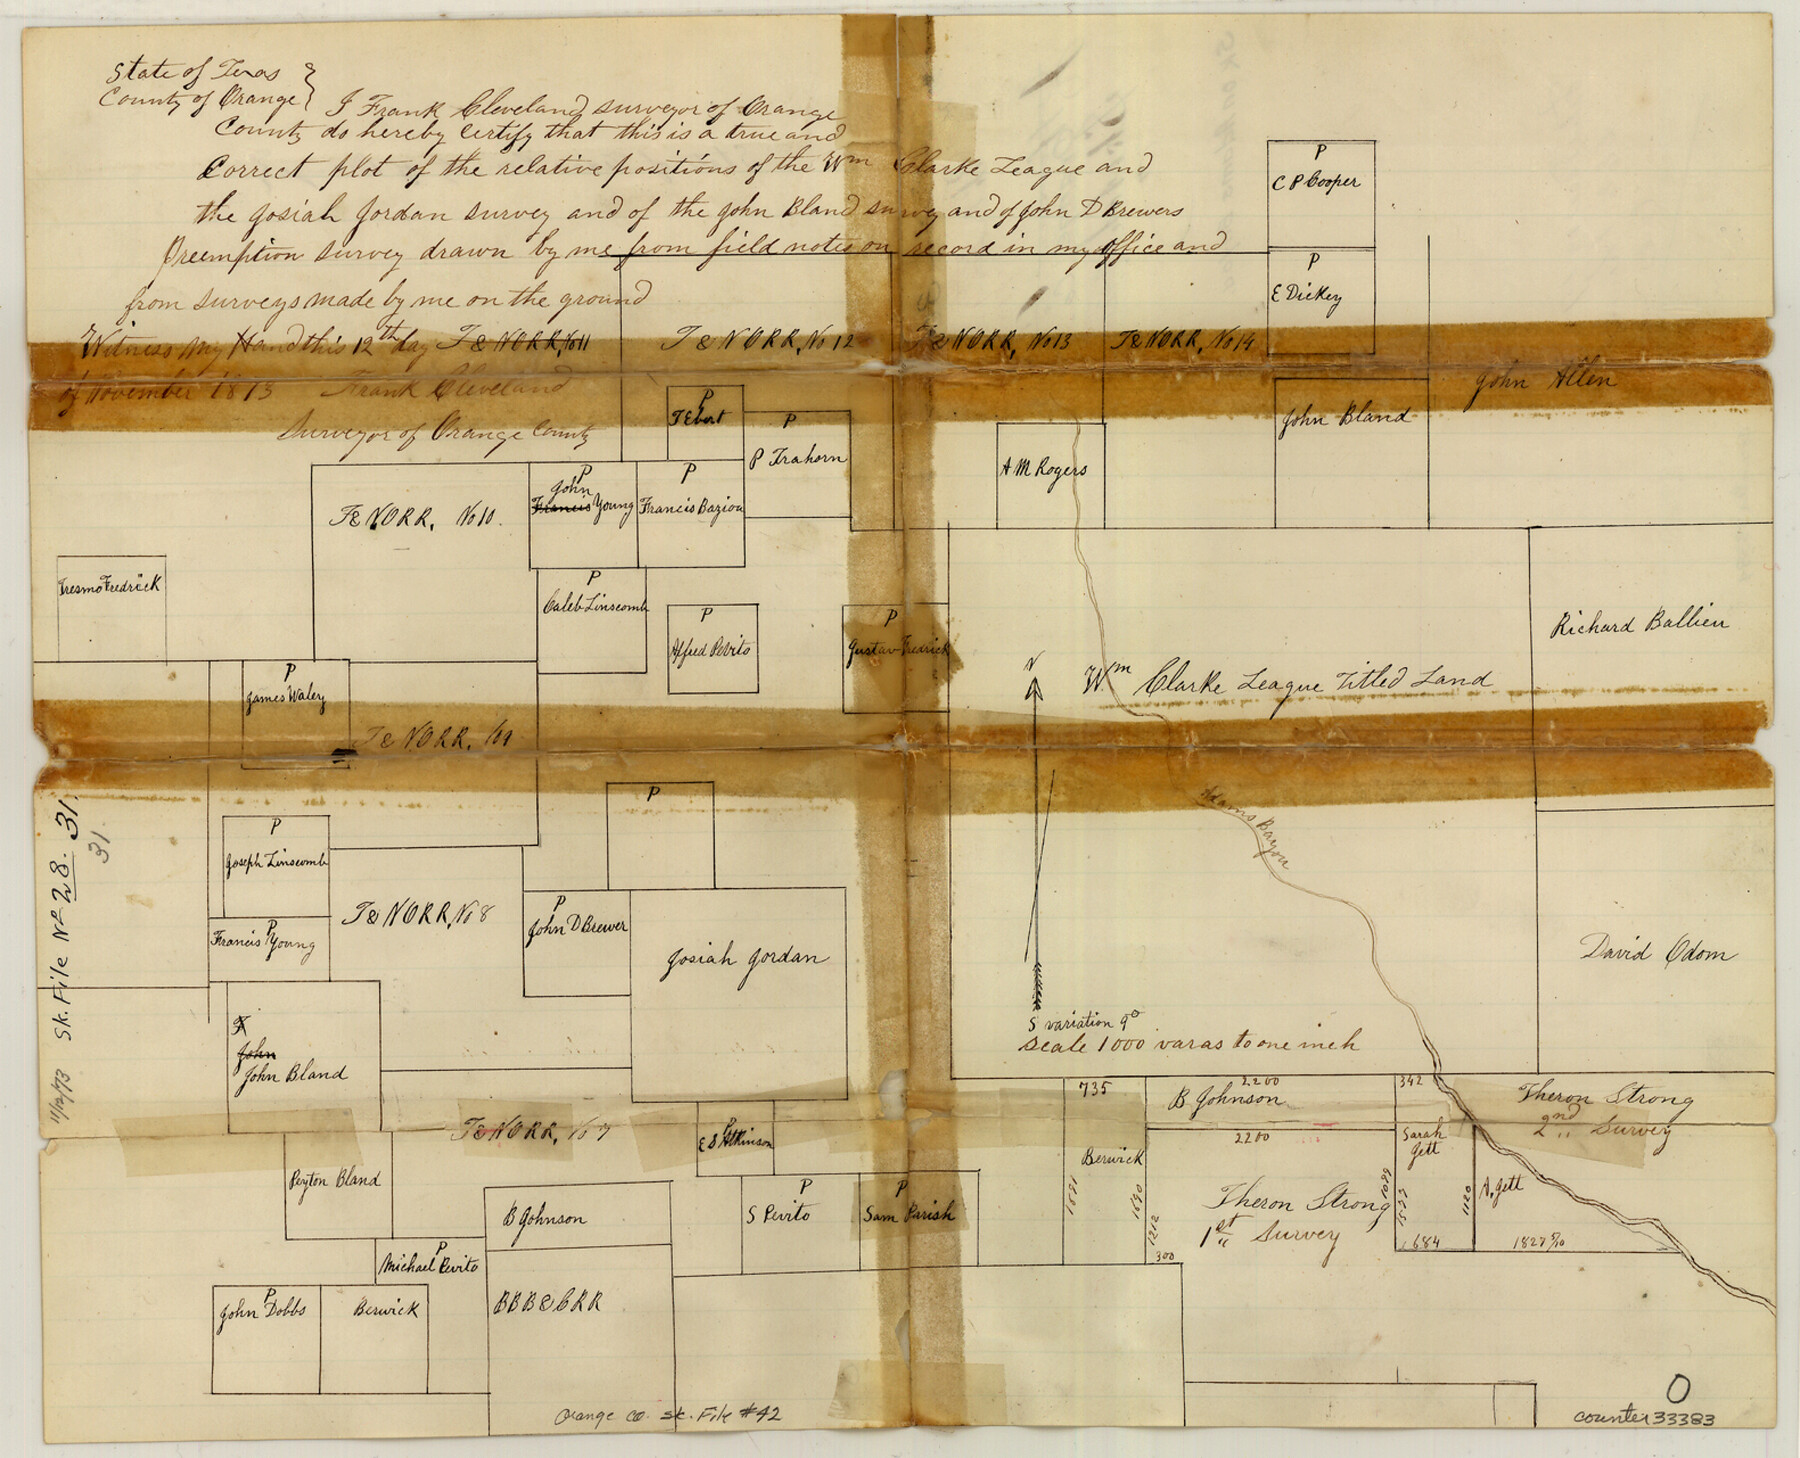 State of Texas }
County of Orange }
I Frank Cleveland surveyor of Orange
County do hereby certify that this is a true and
Correct plot of the relative positions of the Wm Clarke League and
the Josiah Jordan survey and of the John Bland survey and of John D Brewers
Preemption survey drawn by me from field notes on record in my office and
from surveys made by me on the ground
Witness my Hand this 12th day
of November 1873 Frank Cleveland
Surveyor of Orange County
T & NORR, No 11
T & NORR, No 12
T & NORR, No 13
T & NORR, No 14
P
C P Cooper
P
E Dickey
John Allen
John Bland
A M Rogers
P
T Ebert
P
P Trahern
T & NORR, No 10.
P
John
Francis Young
P
Francis Bazion
Fredrick
P
Caleb Linscomb
P
Alfred Pevito
P
Gustav Fredrick
Richard Ballien
N
Wm Clarke League Titled Land
P
James Waley
T & NORR, No 9
P
Adams Bayou
P
Joseph Linscomb
T & NORR, No 8
P
Francis Young
P
John D Brewer
Josiah Jordan
David Odom
S variation 9°
Scale 1000 varas to one inch
John
John Bland
T & NORR, No 7
P
E S Atkinson
735
B Johnson
2200
342
Theron Strong
2nd Survey
2200
Sarah Jett
Berwick
1691
1690
1212
300
Theron Strong
1st Survey
1089
1120
684
A. Jett
1827 5/10
Peyton Bland
B Johnson
P
S Pevito
P
Sam Parish
P
Michael Pevito
P
John Dobbs
Berwick
BBB & CRR
Sk. File No 28. 31.
31
11/12/73
Orange Co. Sk. File #42
0
counter 33383